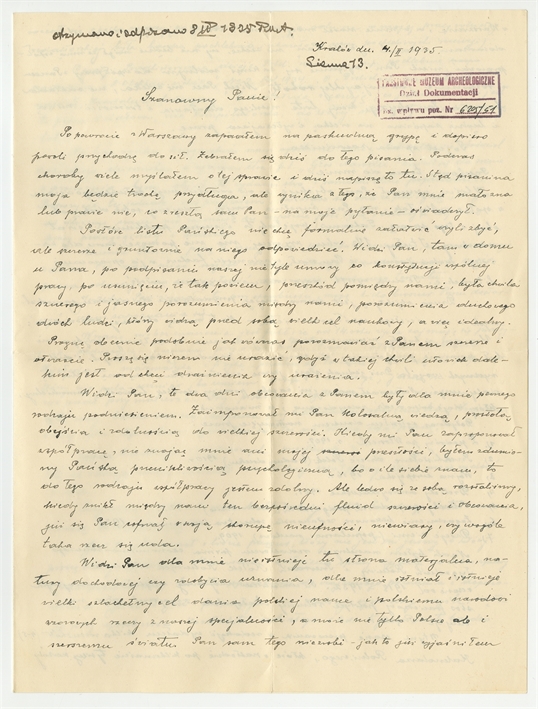 otrzymano i odpisano 8 IV 1935 Kost.
Kraków dn. 4/II 1935
Sienna 13.
PAŃSTWOWE MUZEUM ARCHEOLOGICZNE
Dział Dokumentacji
ks. wpływu poz. Nr 625/61
Szanowny Panie!
Po powrocie z Warszawy zapadłem na paskudną grypę i dopiero
powoli przychodzę do sił. Zebrałem się dziś do tego pisania. Podczas
choroby wiele myślałem o tej sprawie i dziś napiszę to tu. Stąd pisanina
moja będzie trochę przydługa, ale wynika z tego, że Pan mnie mało zna
lub prawie nic, co zresztą sam Pan - na moje pytanie - oświadczył.
Posłów listu Pańskiego nie chcę formalnie załatwić czyli zbyć,
ale szczerze i gruntownie na niego odpowiedzieć. Widzi Pan, tam w domu
u Pana, po podpisaniu naszej nie tyle umowy co konstytucji wspólnej
pracy, po uśmiechu, że tak powiem, przeszkód pomiędzy nami, była chwila
szczerego i jasnego porozumienia między nami, porozumienia duchowego
dwóch ludzi, którzy widzą przed sobą wielki cel naukowy, a więc idealny.
Pragnę obecnie podobnie jak wówczas porozmawiać z Panem szczerze i
otwarcie. Proszę się niczem nie urazić, gdyż w takiej chwili człowiek dale-
kim jest od chęci draśnięcia czy urażenia.
Widzi Pan, te dwa dni obcowania z Panem były dla mnie pewnego
rodzaju podniesieniem. Zaimponował mi Pan kolosalną wiedzą, prostotą
obejścia i zdolnością do wielkiej szczerości. Kiedy mi Pan zaproponował
współpracę, nie znając mnie ani mojej przeszłości, byłem zdumio-
ny Pańską przenikliwością psychologiczną, bo o ile siebie znam, to
do tego rodzaju współpracy jestem zdolny. Ale ledwo się ze sobą rozstaliśmy,
kiedy znikł między nami ten bezpośredni fluid szczerości i obcowania,
już się Pan cofnął w swoją skorupę nieufności, niewiary, czy wogóle
taka rzecz się uda.
Widzi Pan dla mnie nie istnieje tu strona materjalna, na-
tury dochodowej czy zdobycia uznania, dla mnie istniał i istnieje
wielki szlachetny cel dania polskiej nauce i polskiemu narodowi
wzorowych rzeczy z naszej specjalności, a może nie tylko Polsce ale i
szerszemu światu. Pan sam tego nie zrobi - jak to już wyjaśniłem